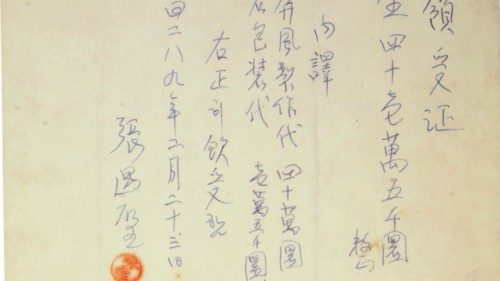 領受証
金 四十壱萬五千圜 整
内譯
屛風製作代 四十萬圜
包装代 壱萬五千圜
右正히領受함
四二八九年二月二十三日
張遇聖